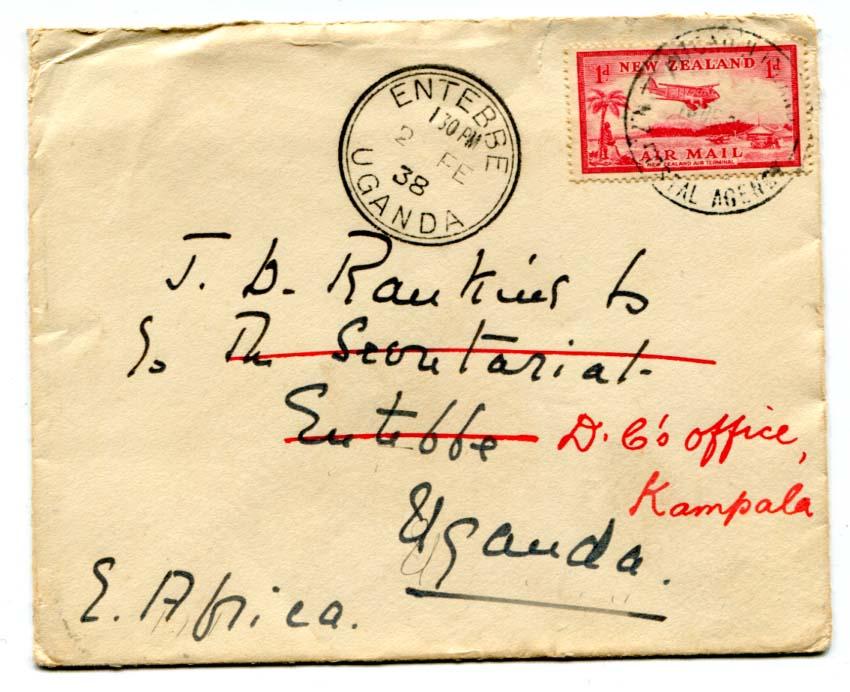 ENTEBBE
1 30 PM
2 FE
38
UGANDA
NEW ZEALAND
1d 1d
AIR MAIL
NEW ZEALAND AIR TERMINAL
POSTAL AGENCY
J. D. Rankine
c/o The Secretariat
Entebbe D. C's office,
Kampala
Uganda.
E. Africa.